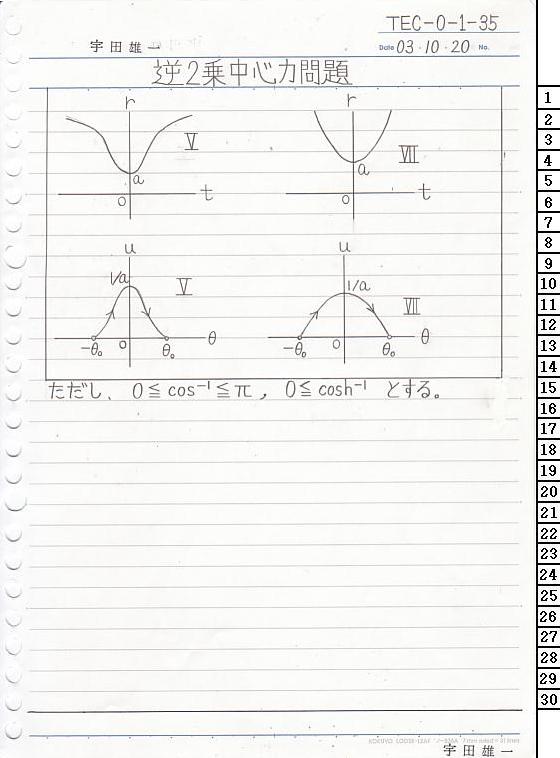 TEC-0-1-35
宇田雄一
Date 03・10・20 No.
逆2乗中心力問題
r
r
Ⅴ
Ⅶ
a
a
0
t
0
t
u
u
1/a
Ⅴ
1/a
Ⅶ
-θ₀
0
θ₀
θ
-θ₀
0
θ₀
θ
ただし、0≦cos⁻¹≦π, 0≦cosh⁻¹ とする。
宇田雄一
1
2
3
4
5
6
7
8
9
10
11
12
13
14
15
16
17
18
19
20
21
22
23
24
25
26
27
28
29
30